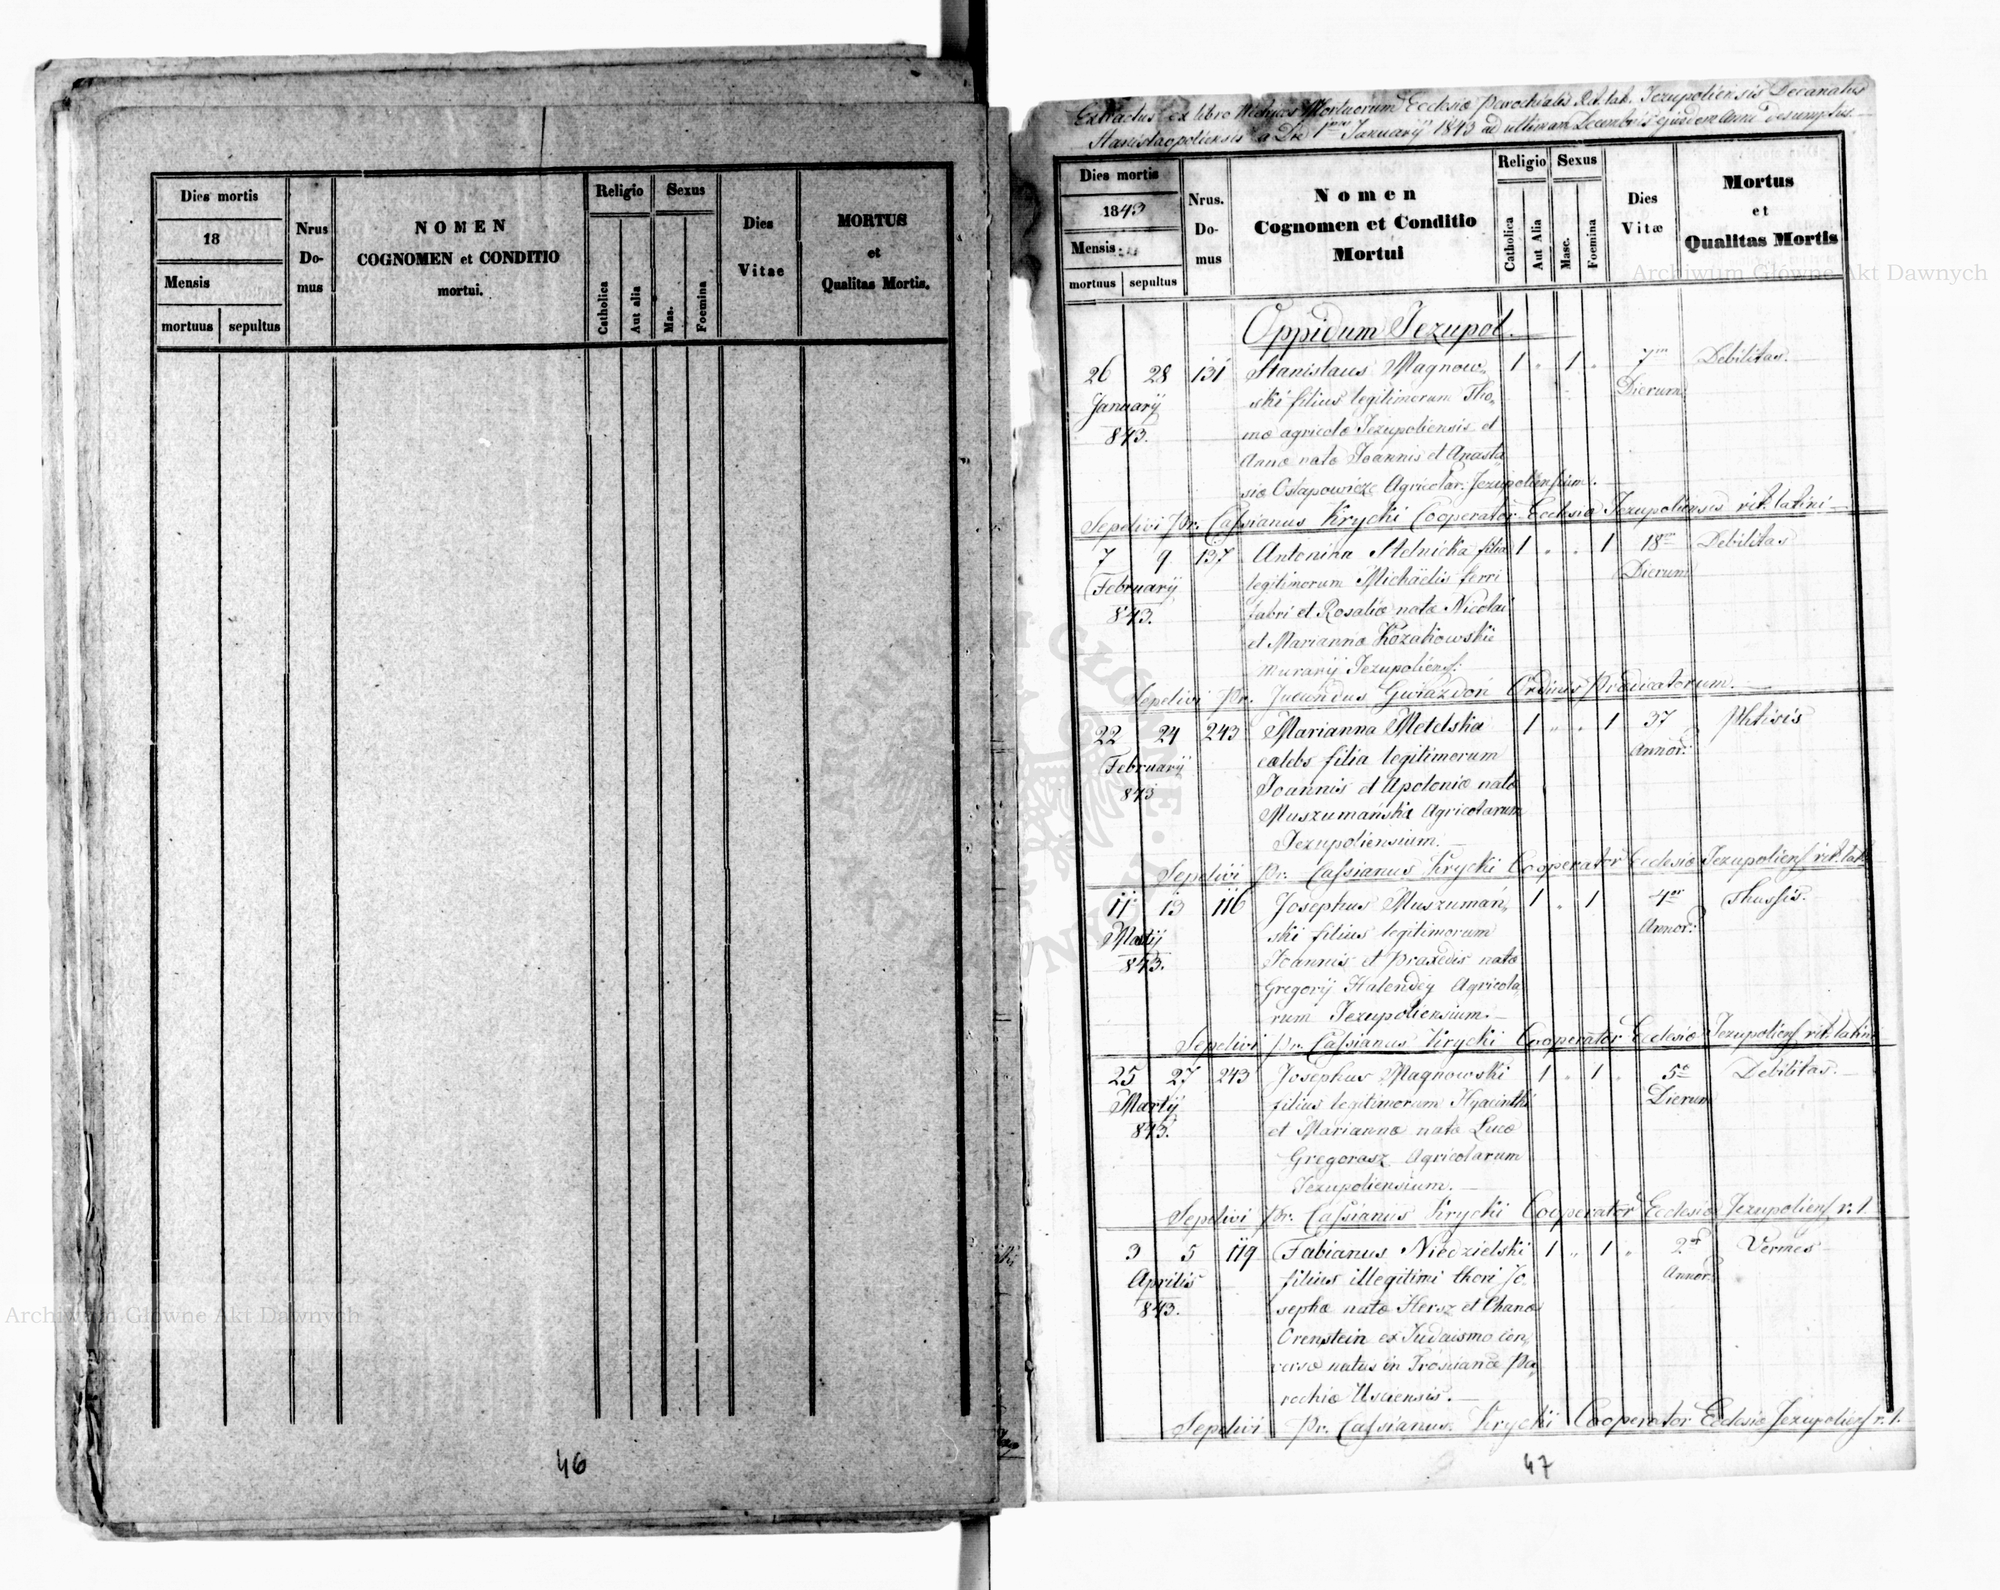 Dies mortis
18
Mensis
mortuus sepultus
Nrus
Do-
mus
NOMEN
COGNOMEN et CONDITIO
mortui.
Religio
Catholica
Aut alia
Sexus
Mas.
Foemina
Dies
Vitae
MORTUS
et
Qualitas Mortis.
46
Extractus ex libro Mortuorum Ecclesiæ Parochialis Rit. lat. Jezupoliensis Decanatus
Stanislaopoliensis a Die 1ma January 1843 ad ultimam Decembris ejusdem anni desumptus.
Dies mortis
1843
Mensis
mortuus sepultus
Nrus.
Do-
mus
Nomen
Cognomen et Conditio
Mortui
Religio
Catholica
Aut Alia
Sexus
Masc.
Foemina
Dies
Vitæ
Mortus
et
Qualitas Mortis
Oppidum Jezupol.
26 28 131 Stanislaus Magnow- 1 " 1 " 7m Debilitas.
January ski filius legitimorum Tho- Dierum
843. mæ agricolæ Jezupoliensis et
Annæ natæ Joannis et Anasta
siæ Ostapowicz Agricolar. Jezupoliensium.
Sepelivi Pr. Cassianus Krycki Cooperator Ecclesia Jezupoliensis rit. latini
7 9 137 Antonina Stelnicka filia 1 " " 1 18m Debilitas
February legitimorum Michaelis ferri Dierum
843. fabri et Rosaliæ natæ Nicolai
et Mariannæ Kozakowskie
murarij Jezupoliens.
Sepelivi Pr. Jucundus Gwiazdoń Ordinis Prædicatorum.
22 24 243 Marianna Metelska 1 " " 1 37 Phtisis
February cælebs filia legitimorum Annor.
843 Joannis et Apoloniæ natæ
Muszumańska Agricolarum
Jezupoliensium.
Sepelivi Pr. Cassianus Krycki Cooperator Ecclesiæ Jezupoliens rit. lat.
11 13 116 Josephus Muszumań- 1 " 1 4or Thussis.
Martij ski filius legitimorum Annor.
843. Joannis et Praxedis natæ
Gregorij Halendey Agricola-
rum Jezupoliensium.
Sepelivi Pr. Cassianus Krycki Cooperator Ecclesiæ Jezupoliens rit. latin
25 27 243 Josephus Magnowski 1 " 1 " 5e Debilitas.
Martij filius legitimorum Hyacinthi Dierum
843. et Mariannæ natæ Lucæ
Gregorasz Agricolarum
Jezupoliensium.
Sepelivi Pr. Cassianus Krycki Cooperator Ecclesiæ Jezupoliens r. l.
3 5 119 Fabianus Niedzielski 1 " 1 " 2or Vermes
Aprilis filius illegitimi thori Jo Annor.
843. sephæ natæ Hersz et Chanæ
Orenstein ex Judaismo con
versæ natus in Prosianæ Pa-
rochiæ Usciensis.
Sepelivi Pr. Cassianus Krycki Cooperator Ecclesiæ Jezupoliens r. l.
47
Archiwum Główne Akt Dawnych
Archiwum Główne Akt Dawnych
ARCHIWUM GŁÓWNE AKT DAWNYCH